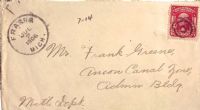 FRASER
MICH.
1906
7-14
Mr. Frank Greene,
Ancon Canal Zone,
Admin Bldg
Math Dept